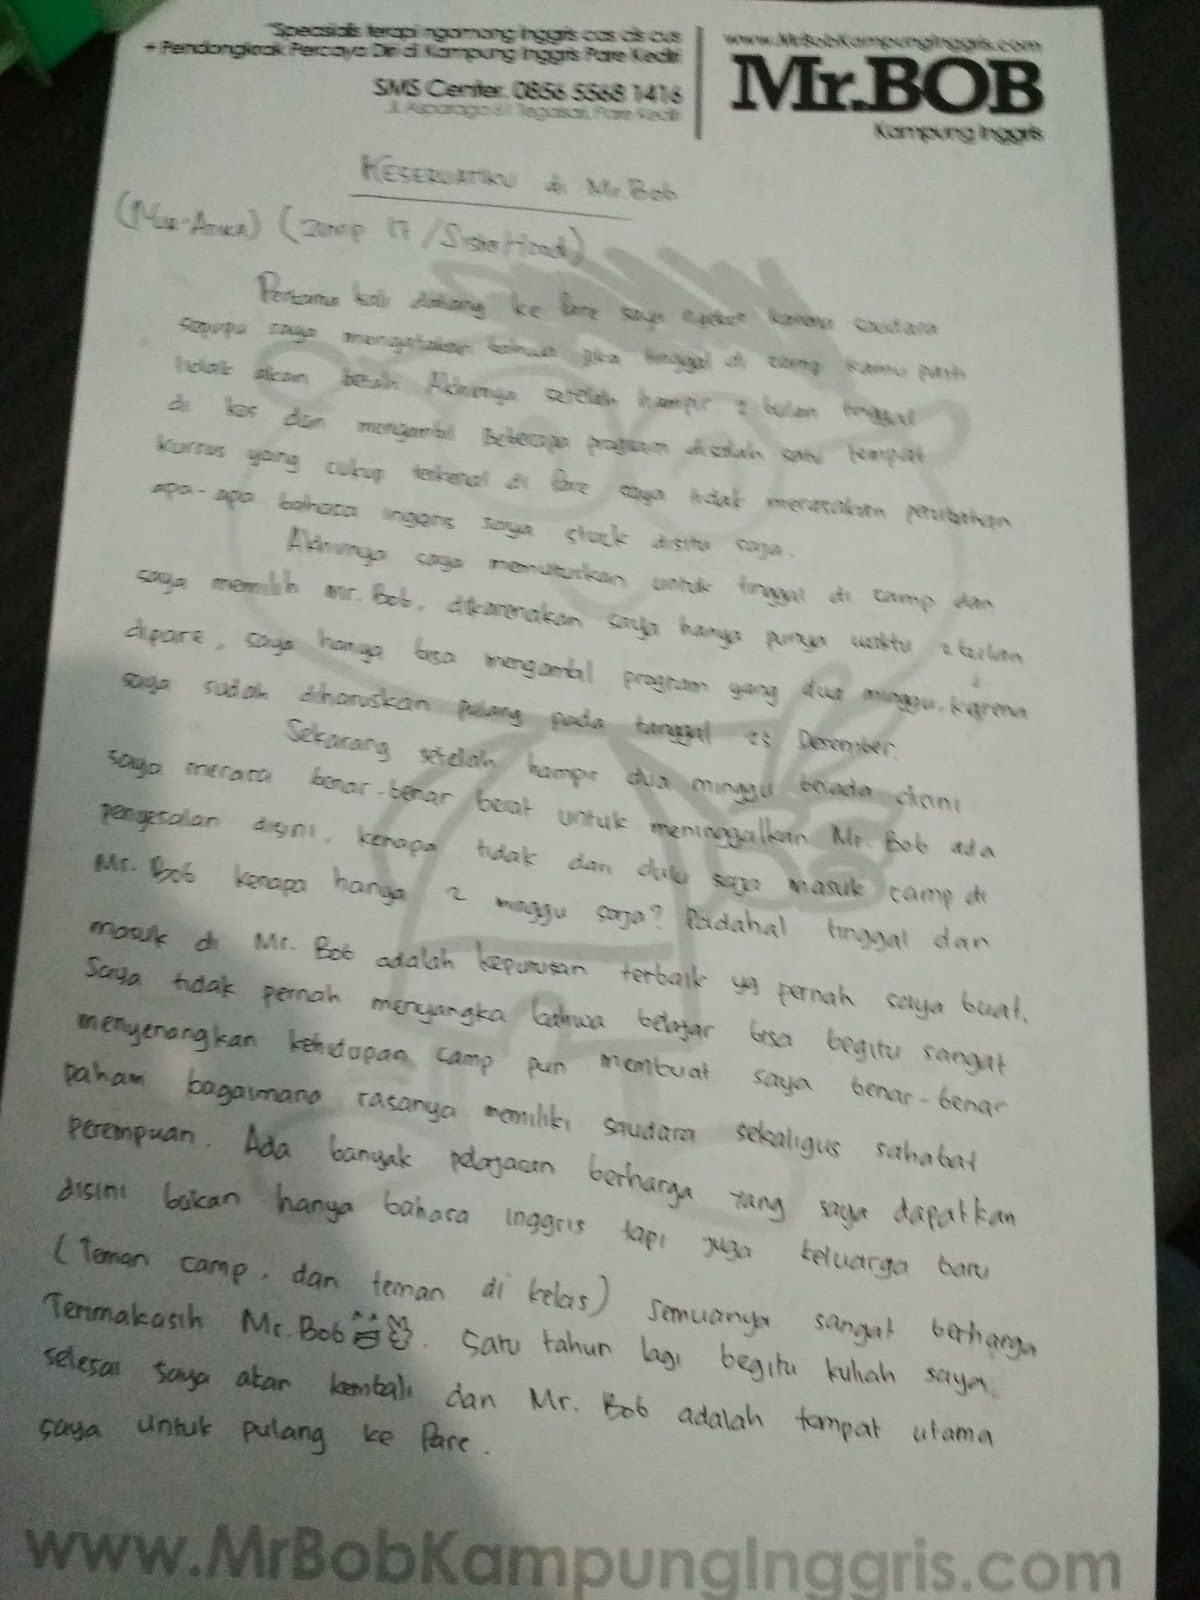 "Spesialis terapi ngomong Inggris cas cis cus
+ Pendongkrak Percaya Diri di Kampung Inggris Pare Kediri
SMS Center. 0856 5568 1416
Jl. Asparaga 61 Tegalsari, Pare Kediri
www.MrBobKampungInggris.com
Mr.BOB
Kampung Inggris
KESERUANKU di Mr.Bob
(Camp 17 / SisterHood)
Pertama kali datang ke Pare saya karena saudara
sepupu saya mengatakan bahwa jika tinggal di camp kamu pasti
tidak akan betah. Akhirnya setelah hampir 2 bulan tinggal
di kos dan mengambil beberapa program disalah satu tempat
kursus yang cukup terkenal di Pare saya tidak merasakan perubahan
apa-apa bahasa inggris saya stuck disitu saja.
Akhirnya saya memutuskan untuk tinggal di camp dan
saya memilih Mr. Bob, dikarenakan saya hanya punya waktu
dipare, saya hanya bisa mengambil program yang dua minggu. Karena
saya sudah diharuskan pulang pada tanggal 25 Desember.
Sekarang setelah hampir dua minggu berada disini
saya merasa benar-benar berat untuk meninggalkan Mr. Bob ada
pengesalan disini, kenapa tidak dari dulu saja masuk camp di
Mr. Bob kenapa hanya 2 minggu saja? Padahal tinggal dan
masuk di Mr. Bob adalah keputusan terbaik yg pernah saya buat.
Saya tidak pernah menyangka bahwa belajar bisa begitu sangat
menyenangkan kehidupan camp pun membuat saya benar-benar
paham bagaimana rasanya memiliki saudara sekaligus sahabat
perempuan. Ada banyak pelajaran berharga yang saya dapatkan
disini bukan hanya bahasa inggris tapi juga keluarga baru
(Teman camp, dan teman di kelas) semuanya sangat berharga
Terimakasih Mr. Bob. Satu tahun lagi begitu kuliah saya
selesai saya akan kembali dan Mr. Bob adalah tempat utama
saya untuk pulang ke Pare.
www.MrBobKampungInggris.com